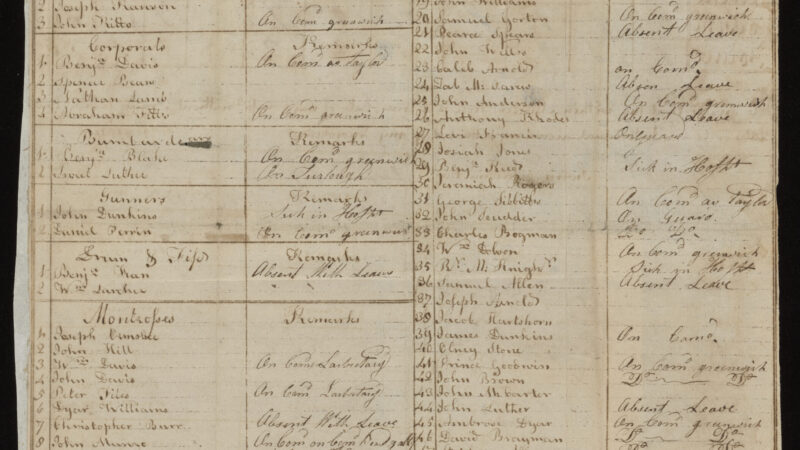 2 Joseph Ranson
3 John Kitts On Comd greenwich
Corporals Remarks
1 Benjn Davis On Comd as Taylor
2 Spencer Bean
3 Nathan Lamb
4 Abraham Fitts On Comd greenwich
Bumbardears Remarks
1 Benjn Blake On Comd greenwich
2 Luther On Furlough
Gunners Remarks
1 John Dunkins Sick in Hospt
2 Daniel Perrin On Comd greenwich
Drum & Fifs Remarks
1 Benjn Absent With Leave
2 Wm
Montrosses Remarks
1 Joseph Ormsbee
2 John Hill
3 Wm Davis On Comd Larbratary
4 John Davis
5 Peter Files On Comd Larbratary
6 Dyar Williams
7 Christopher Burr Absent With Leave
8 John Munro On Comd
19 John Williams
20 Samuel Gorton On Comd greenwich
21 Pearce Spears Absent Leave
22 John Kitts
23 Caleb Arnold on Comd
24 Absen Leave
25 John Anderson On Comd greenwich
26 Anthony Rhodes Absent Leave
27 Levi Francis
28 Josiah Jones
29 Benjn Sick in Hospt
30 Jeremiah Rogers
31 George Sibbitts On Comd as Taylor
32 John On Guard
33 Charles Bogman Do Do
34 Wm On Comd greenwich
35 Rt McKnight Sick in Hospt
36 Samuel Allen Absent Leave
37 Joseph Arnold
38 Jacob Hartshorn
39 James Dunkins On Comd
40 Olney Stone
41 Prince Goodwin On Comd greenwich
42 John Brown Do Do
43 John McCarter
44 John Luther Absent Leave
45 Ambrose Dyar On Comd greenwich
46 David Brayman Do Do